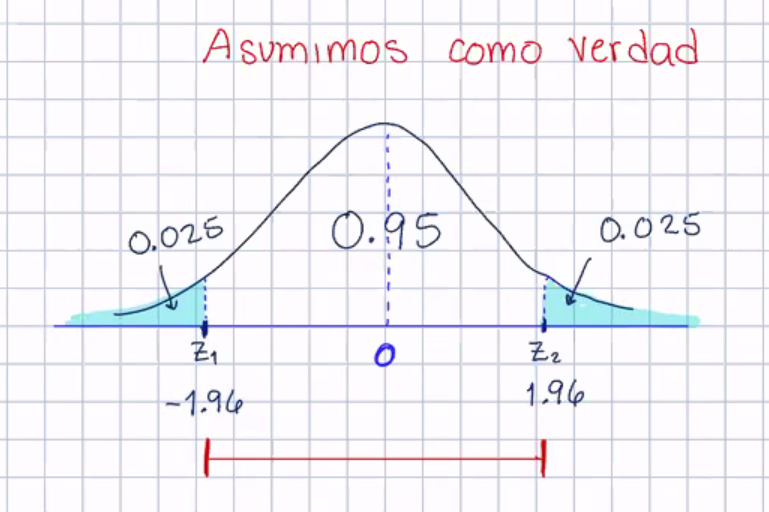 Asumimos como verdad
0.025
0.95
0.025
Z₁
0
Z₂
-1.96
1.96